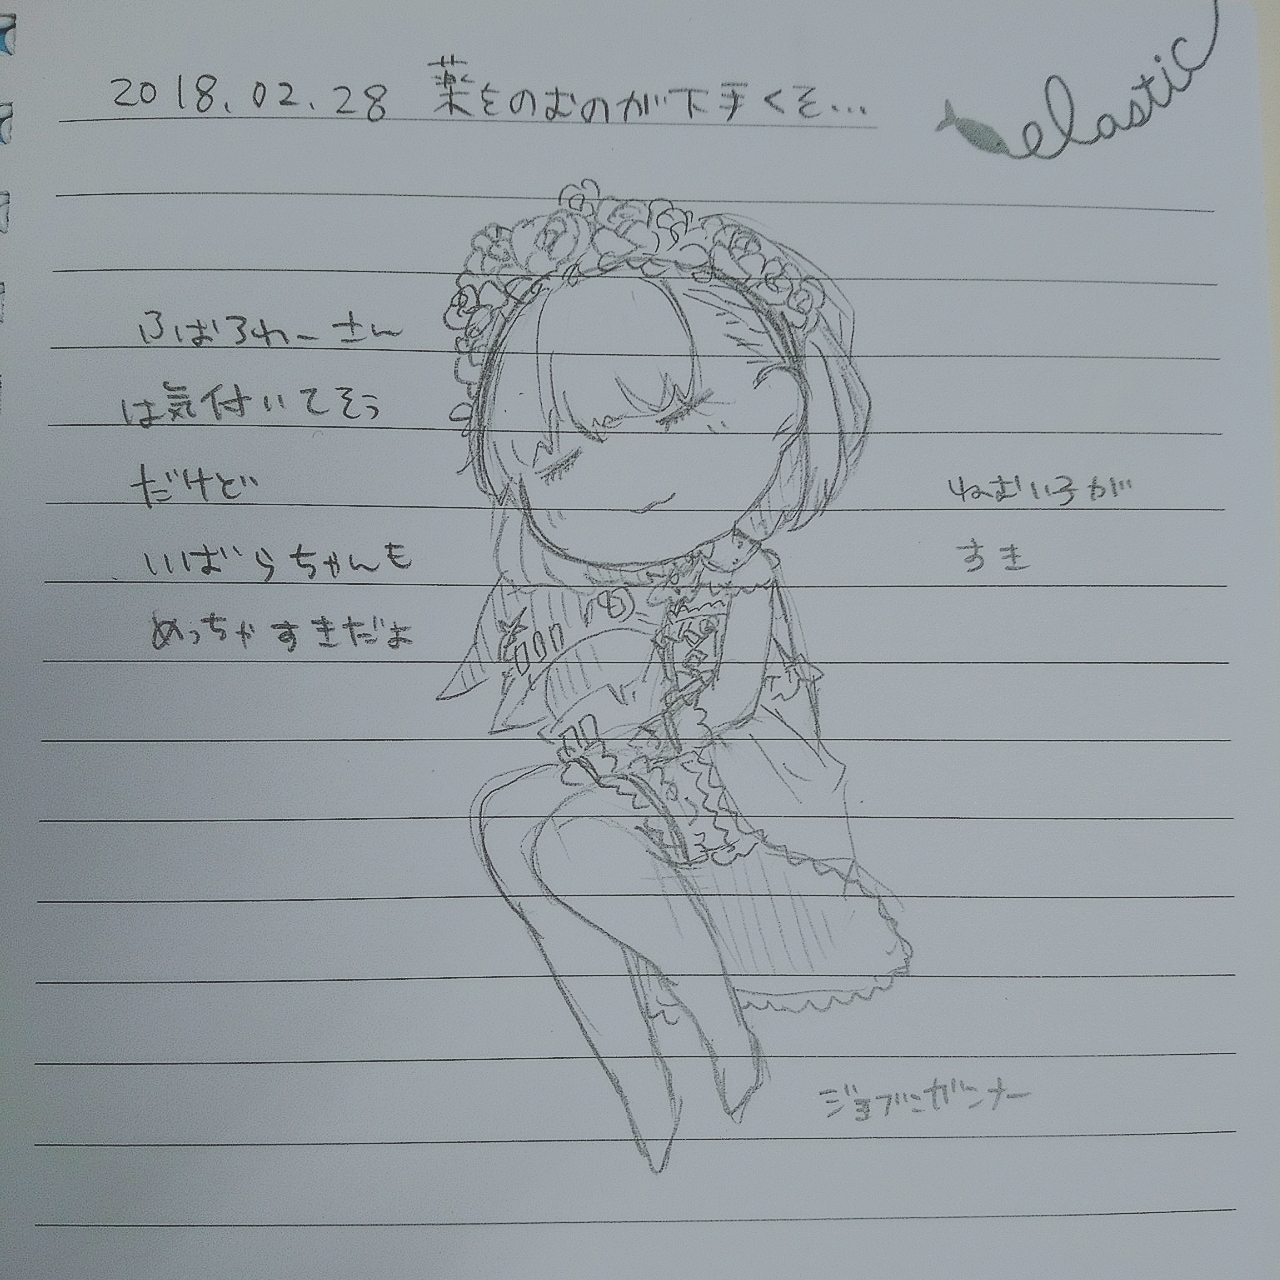 2018.02.28 薬をのむのが下手くそ...
elastic
ふぉろわーさん
は気付いてそう
だけど
いばらちゃんも
めっちゃすきだよ
ねむい子が
すき
ジョブにガンナー